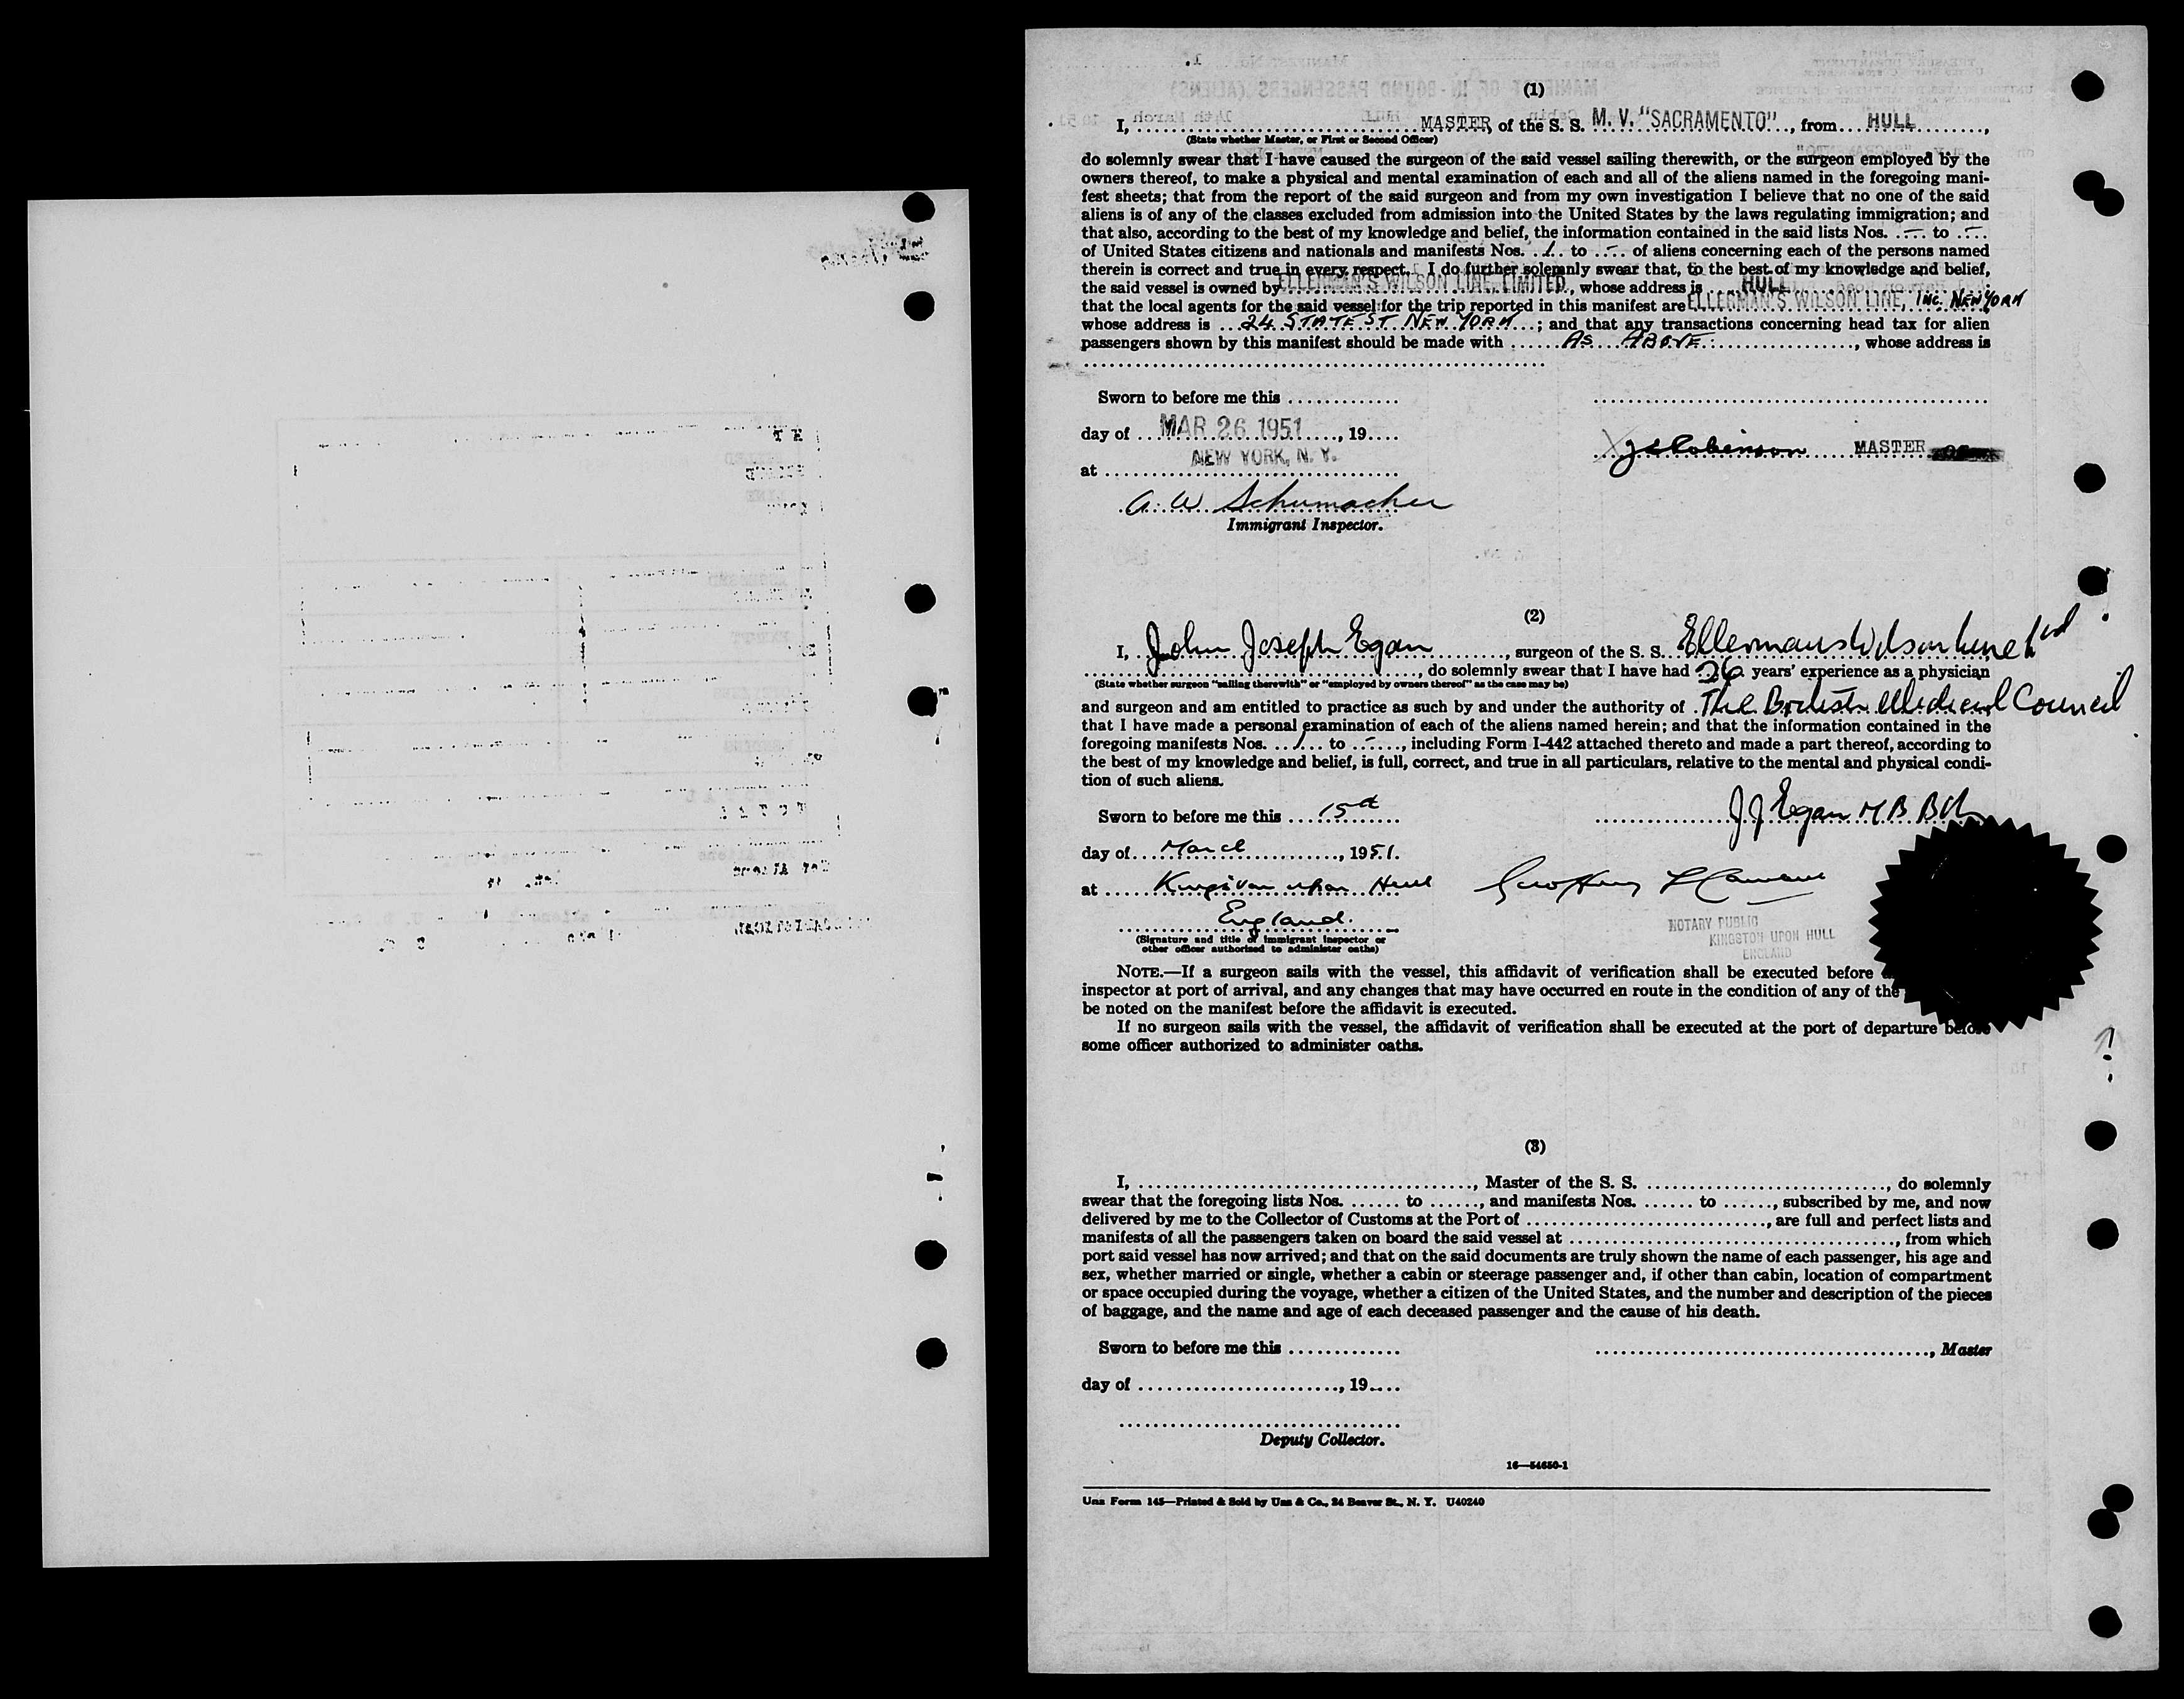 (1)
I, MASTER, of the S. S. M. V. "SACRAMENTO", from HULL,
(State whether Master, or First or Second Officer)
do solemnly swear that I have caused the surgeon of the said vessel sailing therewith, or the surgeon employed by the
owners thereof, to make a physical and mental examination of each and all of the aliens named in the foregoing mani-
fest sheets; that from the report of the said surgeon and from my own investigation I believe that no one of the said
aliens is of any of the classes excluded from admission into the United States by the laws regulating immigration; and
that also, according to the best of my knowledge and belief, the information contained in the said lists Nos. - to -
of United States citizens and nationals and manifests Nos. 1 to - of aliens concerning each of the persons named
therein is correct and true in every respect. I do further solemnly swear that, to the best of my knowledge and belief,
the said vessel is owned by ELLERMAN'S WILSON LINE, LIMITED, whose address is HULL;
that the local agents for the said vessel for the trip reported in this manifest are ELLERMAN'S WILSON LINE, INC. NEW YORK
whose address is 24 STATE ST NEW YORK; and that any transactions concerning head tax for alien
passengers shown by this manifest should be made with AS ABOVE, whose address is
Sworn to before me this
day of MAR 26 1951, 19
Robinson MASTER
at NEW YORK, N. Y.
A. W. Schumacher
Immigrant Inspector.
(2)
I, John Joseph Egan, surgeon of the S. S. Ellermans Wilson Line Ltd
, do solemnly swear that I have had 26 years' experience as a physician
(State whether surgeon "sailing therewith" or "employed by owners thereof" as the case may be)
and surgeon and am entitled to practice as such by and under the authority of The British Medical Council
that I have made a personal examination of each of the aliens named herein; and that the information contained in the
foregoing manifests Nos. 1 to -, including Form I-442 attached thereto and made a part thereof, according to
the best of my knowledge and belief, is full, correct, and true in all particulars, relative to the mental and physical condi-
tion of such aliens.
Sworn to before me this 15th
J J Egan M B B Ch
day of March, 1951.
at Kingston upon Hull
England.
NOTARY PUBLIC
KINGSTON UPON HULL
ENGLAND
(Signature and title of immigrant inspector or
other officer authorized to administer oaths)
NOTE.—If a surgeon sails with the vessel, this affidavit of verification shall be executed before
inspector at port of arrival, and any changes that may have occurred en route in the condition of any of the
be noted on the manifest before the affidavit is executed.
If no surgeon sails with the vessel, the affidavit of verification shall be executed at the port of departure before
some officer authorized to administer oaths.
(3)
I, , Master of the S. S. , do solemnly
swear that the foregoing lists Nos. to , and manifests Nos. to , subscribed by me, and now
delivered by me to the Collector of Customs at the Port of , are full and perfect lists and
manifests of all the passengers taken on board the said vessel at , from which
port said vessel has now arrived; and that on the said documents are truly shown the name of each passenger, his age and
sex, whether married or single, whether a cabin or steerage passenger and, if other than cabin, location of compartment
or space occupied during the voyage, whether a citizen of the United States, and the number and description of the pieces
of baggage, and the name and age of each deceased passenger and the cause of his death.
Sworn to before me this
, Master
day of , 19
Deputy Collector.
16—54650-1
Unz Form 145—Printed & Sold by Unz & Co., 24 Beaver St., N. Y. U40240